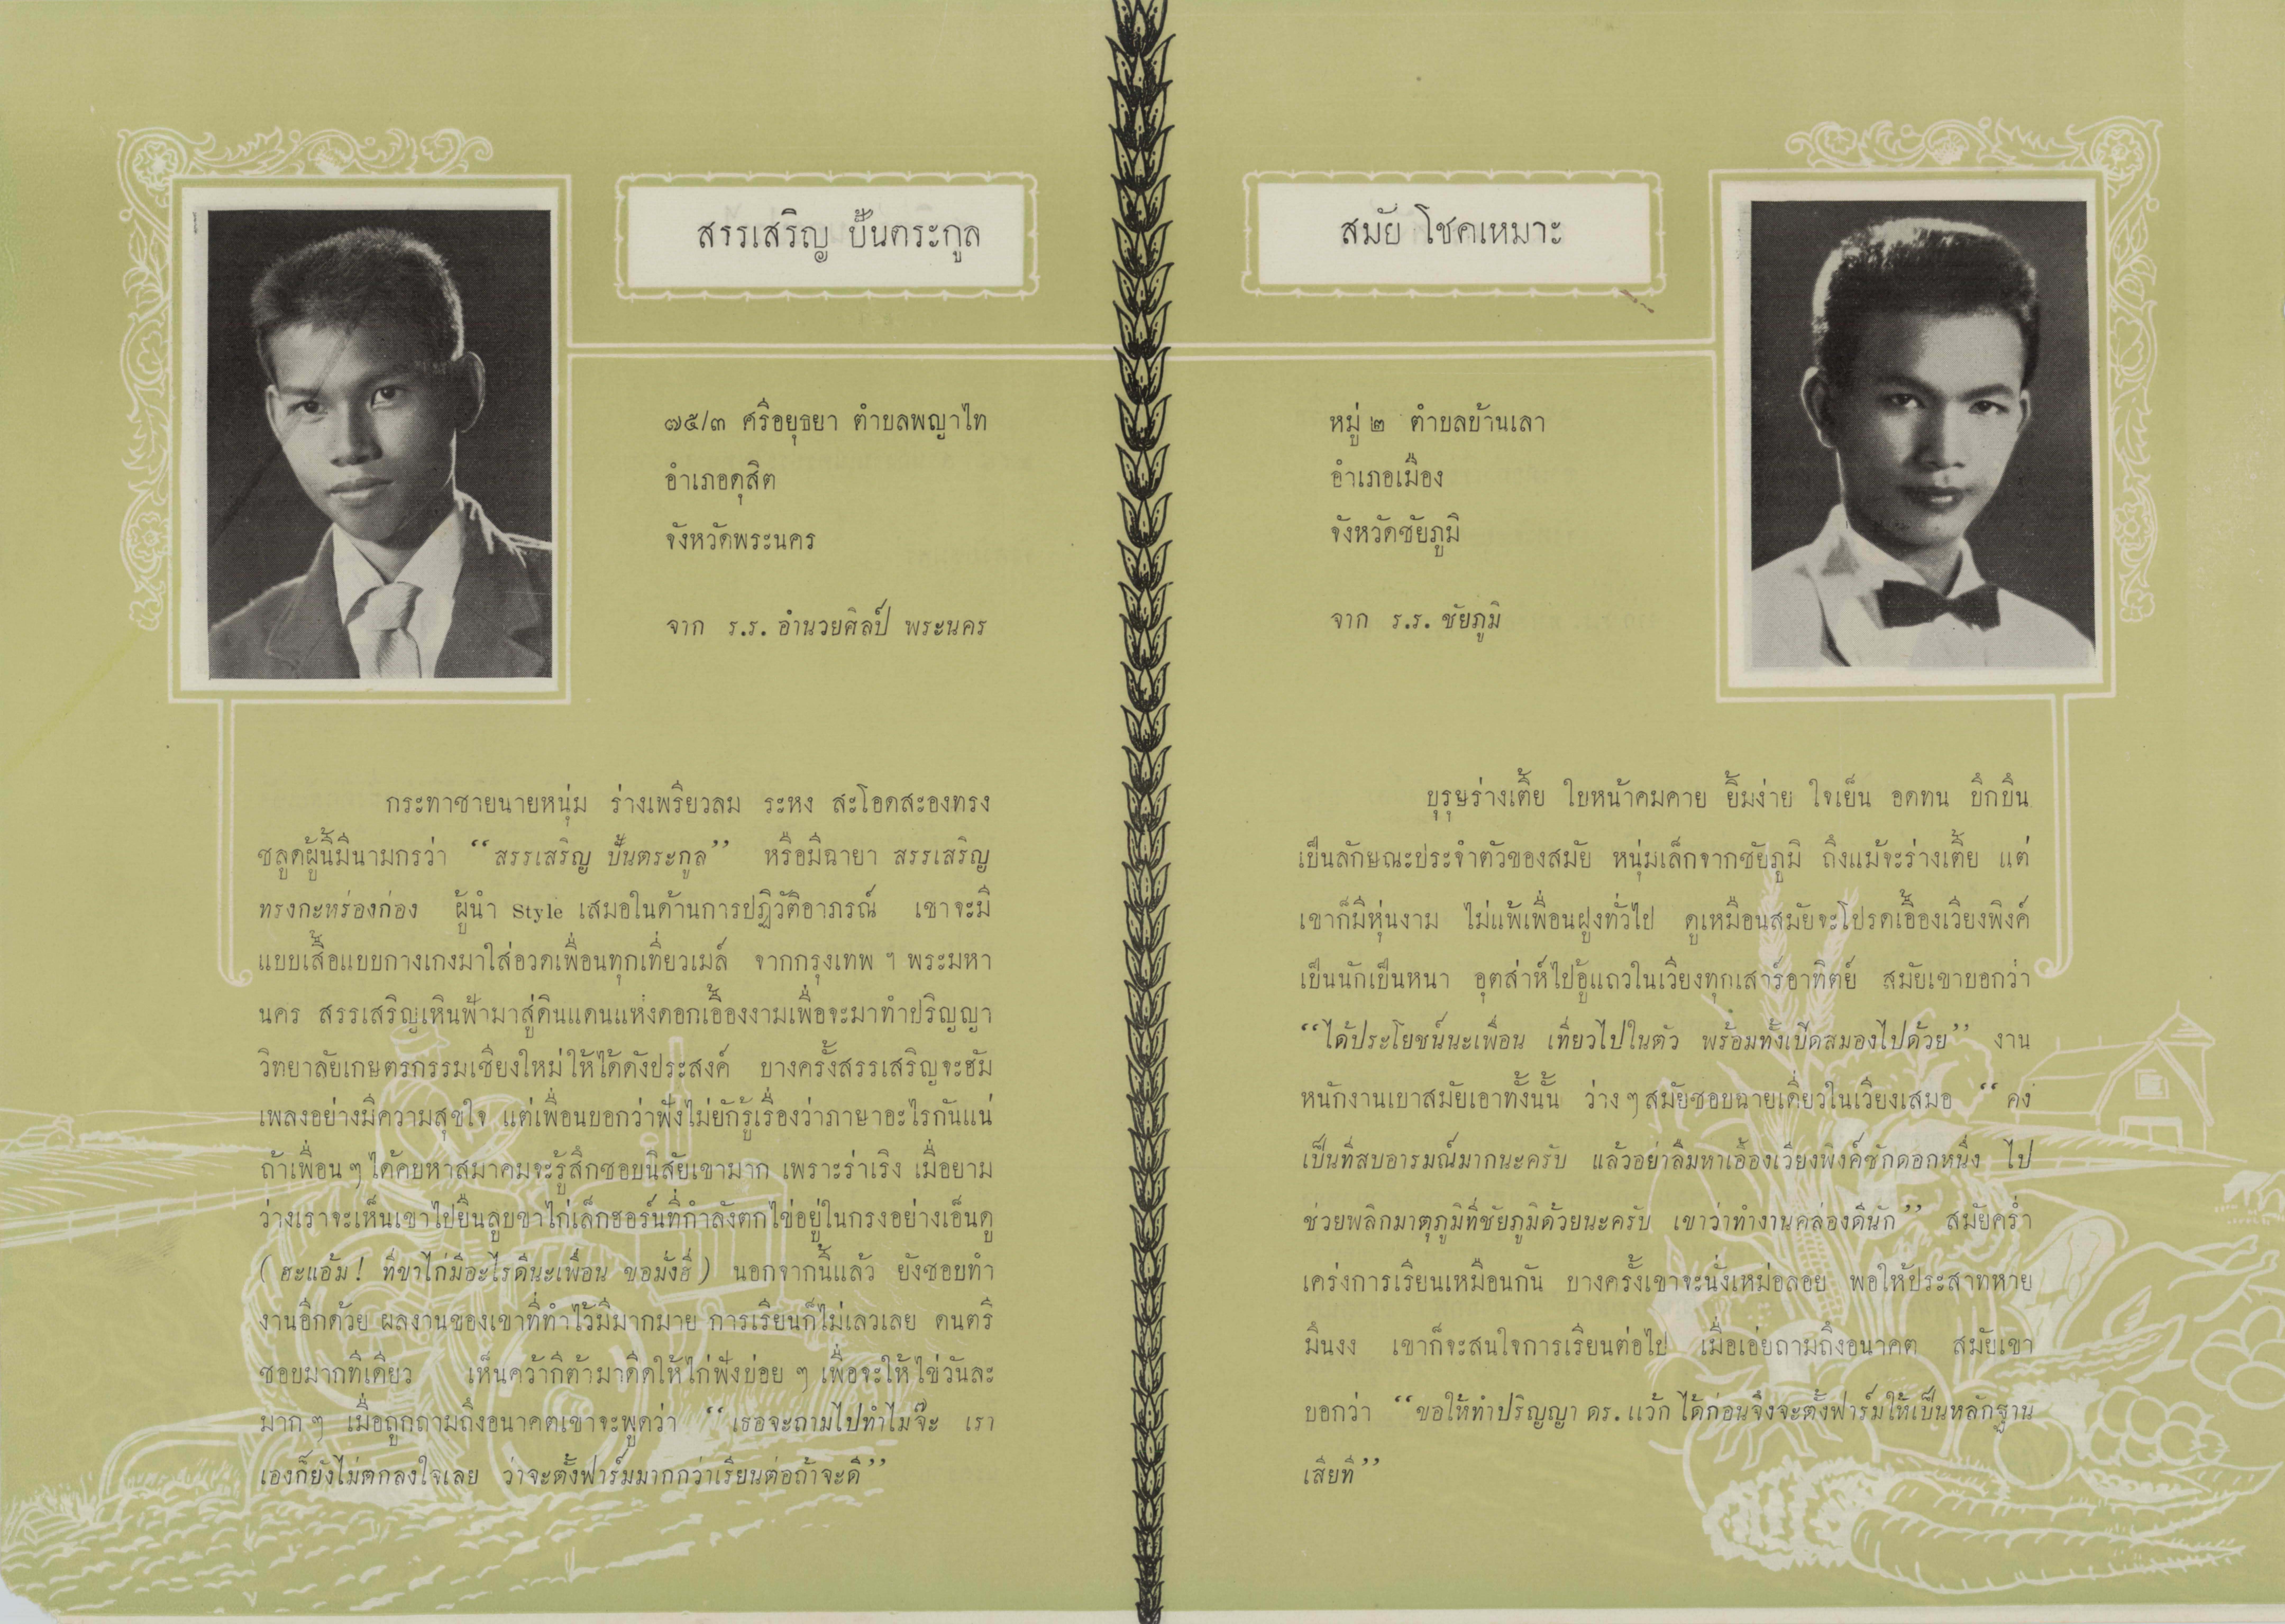 สรรเสริญ ปั้นตระกูล
๗๕/๓ ศรีอยุธยา ตำบลพญาไท
อำเภอดุสิต
จังหวัดพระนคร
จาก ร.ร. อำนวยศิลป์ พระนคร
กระทาชายนายหนุ่ม ร่างเพรียวลม ระหง สะโอดสะองทรง
ชลูดผู้นี้มีนามกรว่า “สรรเสริญ ปั้นตระกูล” หรือมีฉายา สรรเสริญ
ทรงกะหร่องก่อง ผู้นำ Style เสมอในด้านการปฏิวัติอาภรณ์ เขาจะมี
แบบเสื้อแบบกางเกงมาใส่อวดเพื่อนทุกเที่ยวเมล์ จากกรุงเทพ ฯ พระมหา
นคร สรรเสริญเหินฟ้ามาสู่ดินแดนแห่งดอกเอื้องงามเพื่อจะมาทำปริญญา
วิทยาลัยเกษตรกรรมเชียงใหม่ให้ได้ดังประสงค์ บางครั้งสรรเสริญจะฮัม
เพลงอย่างมีความสุขใจ แต่เพื่อนบอกว่าฟังไม่ยักรู้เรื่องว่าภาษาอะไรกันแน่
ถ้าเพื่อน ๆ ได้คบหาสมาคมจะรู้สึกชอบนิสัยเขามาก เพราะร่าเริง เมื่อยาม
ว่างเราจะเห็นเขาไปยืนลูบขาไก่เล็กฮอร์นที่กำลังตกไข่อยู่ในกรงอย่างเอ็นดู
(ฮะแอ้ม! ที่ขาไก่มีอะไรดีนะเพื่อน ขอมั่งฮิ) นอกจากนี้แล้ว ยังชอบทำ
งานอีกด้วย ผลงานของเขาที่ทำไว้มีมากมาย การเรียนก็ไม่เลวเลย ดนตรี
ชอบมากทีเดียว เห็นคว้ากีต้ามาดีดให้ไก่ฟังบ่อย ๆ เพื่อจะให้ไข่วันละ
มาก ๆ เมื่อถูกถามถึงอนาคตเขาจะพูดว่า “เธอจะถามไปทำไมจ๊ะ เรา
เองก็ยังไม่ตกลงใจเลย ว่าจะตั้งฟาร์มมากกว่าเรียนต่อถ้าจะดี”
สมัย โชคเหมาะ
หมู่ ๒ ตำบลบ้านเลา
อำเภอเมือง
จังหวัดชัยภูมิ
จาก ร.ร. ชัยภูมิ
บุรุษร่างเตี้ย ใบหน้าคมคาย ยิ้มง่าย ใจเย็น อดทน บึกบึน
เป็นลักษณะประจำตัวของสมัย หนุ่มเล็กจากชัยภูมิ ถึงแม้จะร่างเตี้ย แต่
เขาก็มีหุ่นงาม ไม่แพ้เพื่อนฝูงทั่วไป ดูเหมือนสมัยจะโปรดเอื้องเวียงพิงค์
เป็นนักเป็นหนา อุตส่าห์ไปอู้แถวในเวียงทุกเสาร์อาทิตย์ สมัยเขาบอกว่า
“ได้ประโยชน์นะเพื่อน เที่ยวไปในตัว พร้อมทั้งเบิดสมองไปด้วย” งาน
หนักงานเบาสมัยเอาทั้งนั้น ว่าง ๆ สมัยชอบฉายเดี่ยวในเวียงเสมอ “คง
เป็นที่สบอารมณ์มากนะครับ แล้วอย่าลืมหาเอื้องเวียงพิงค์ซักดอกหนึ่ง ไป
ช่วยพลิกมาตุภูมิที่ชัยภูมิด้วยนะครับ เขาว่าทำงานคล่องดีนัก” สมัยคร่ำ
เคร่งการเรียนเหมือนกัน บางครั้งเขาจะนั่งเหม่อลอย พอให้ประสาทหาย
มึนงง เขาก็จะสนใจการเรียนต่อไป เมื่อเอ่ยถามถึงอนาคต สมัยเขา
บอกว่า “ขอให้ทำปริญญา ดร. แว้ก ได้ก่อนจึงจะตั้งฟาร์มให้เป็นหลักฐาน
เสียที”